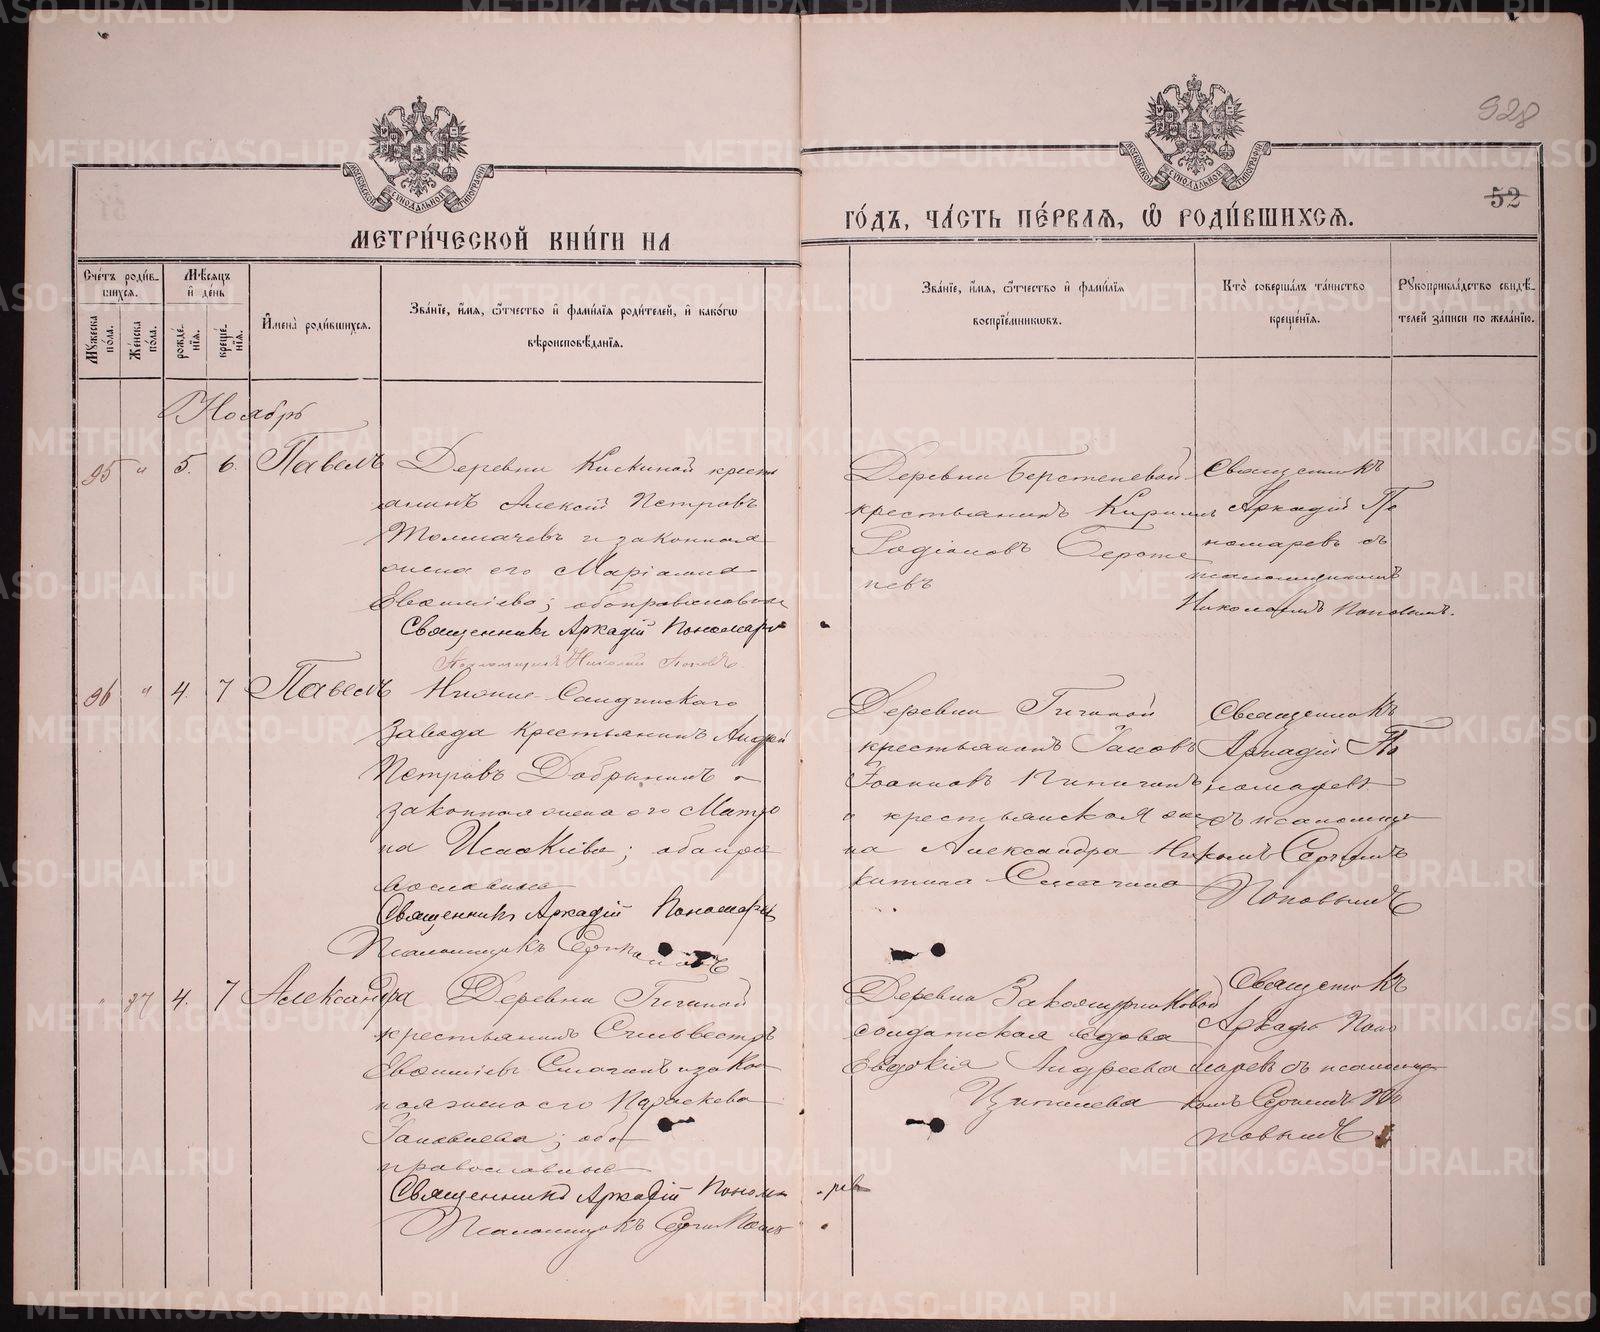 928
52
МОСКОВСКОЙ СѴНОДАЛЬНОЙ ТИПОГРАФІИ
МОСКОВСКОЙ СѴНОДАЛЬНОЙ ТИПОГРАФІИ
МЕТРИ́ЧЕСКОЙ КНИ́ГИ НА
ГО́ДЪ, ЧА́СТЬ ПЕ́РВАѦ, Ѡ҆ РОДИ́ВШИХСѦ.
Сче́тъ роди́в-
шихсѧ.
Мꙋжеска по́ла.
Же́нска по́ла.
Мѣ́сѧцъ
и҆ де́нь
рожде́-
нїѧ.
креще́-
нїѧ.
И҆мена̀ роди́вшихсѧ.
Зва́нїе, и҆́мѧ, ѻ҆́тчество и҆ фами́лїѧ роди́телей, и҆ како́гѡ
вѣроисповѣ́данїѧ.
Зва́нїе, и҆́мѧ, ѻ҆́тчество и҆ фами́лїѧ
воспрїе́мникѡвъ.
Кто̀ соверша́лъ та́инство
креще́нїѧ.
Рꙋкоприкла́дство свидѣ́-
телей за́писи по жела́нїю.
Ноябрь
95 " 5. 6. Павелъ
Деревни Кискиной крестъ
янинъ Алексій Петровъ
Толмачевъ и законная
жена его Маріамна
Евѳиміева; оба православные
Священникъ Аркадій Пономаре
Псаломщикъ Николай Поповъ.
Деревни Берстеневой
крестьянинъ Кириллъ
Родіоновъ Берсте
невъ
Священникъ
Аркадій По
номаревъ съ
псаломщикомъ
Николаемъ Поповымъ.
96 " 4. 7 Павелъ
Нижне-Салдинскаго
Завода крестьянинъ Андрей
Петровъ Добрынинъ и
законная жена его Матро
на Исаакіева; оба пра
вославные
Священникъ Аркадій Пономаре
Псаломщикъ Сергій
Деревни
крестьянинъ Іаковъ
Іоанновъ
и крестьянская же
на Александра Ни
китина
Священникъ
Аркадій По
номаревъ
съ псаломщи
комъ Сергіемъ
Поповымъ
" 87 4. 7 Александра
Деревни
крестьянинъ Сильвестръ
Евѳиміевъ и закон
ная жена его Параскева
Іаковлева; оба
православные
Священникъ Аркадій Пономаревъ
Псаломщикъ Сергій Поповъ
Деревни
солдатская вдова
Евдокія Андреева
Священникъ
Аркадій Поно
маревъ съ псаломщи
комъ Сергіемъ По
повымъ
METRIKI.GASO-URAL.RU